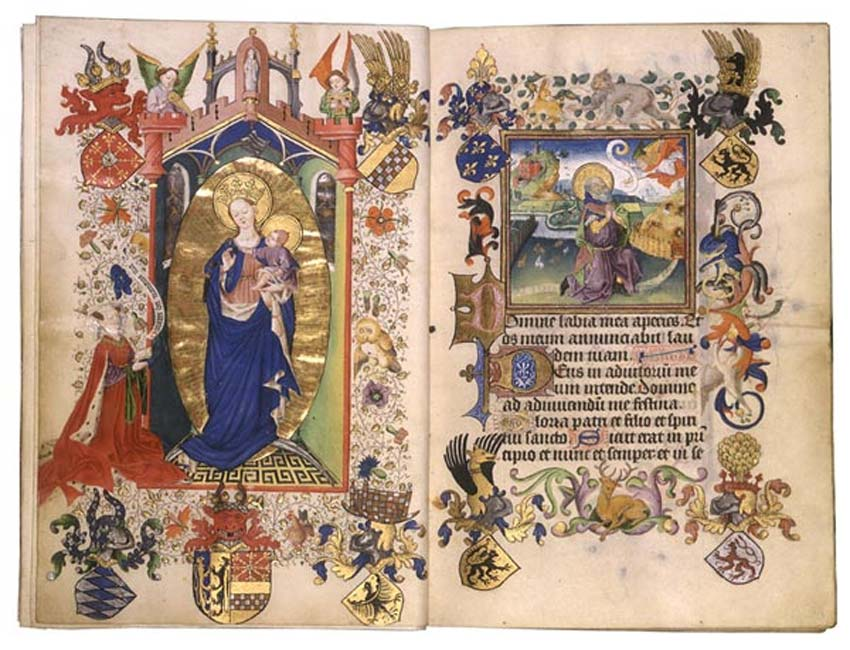 Domine labia mea aperies. Et
os meum annunciabit lau
dem tuam.
Deus in adiutoriū me
um intende. Domine
ad adiuvandū me festina.
Gloria patri et filio et spiri
tui sancto Sicut erat in prī
cipio et nunc et semper et in se